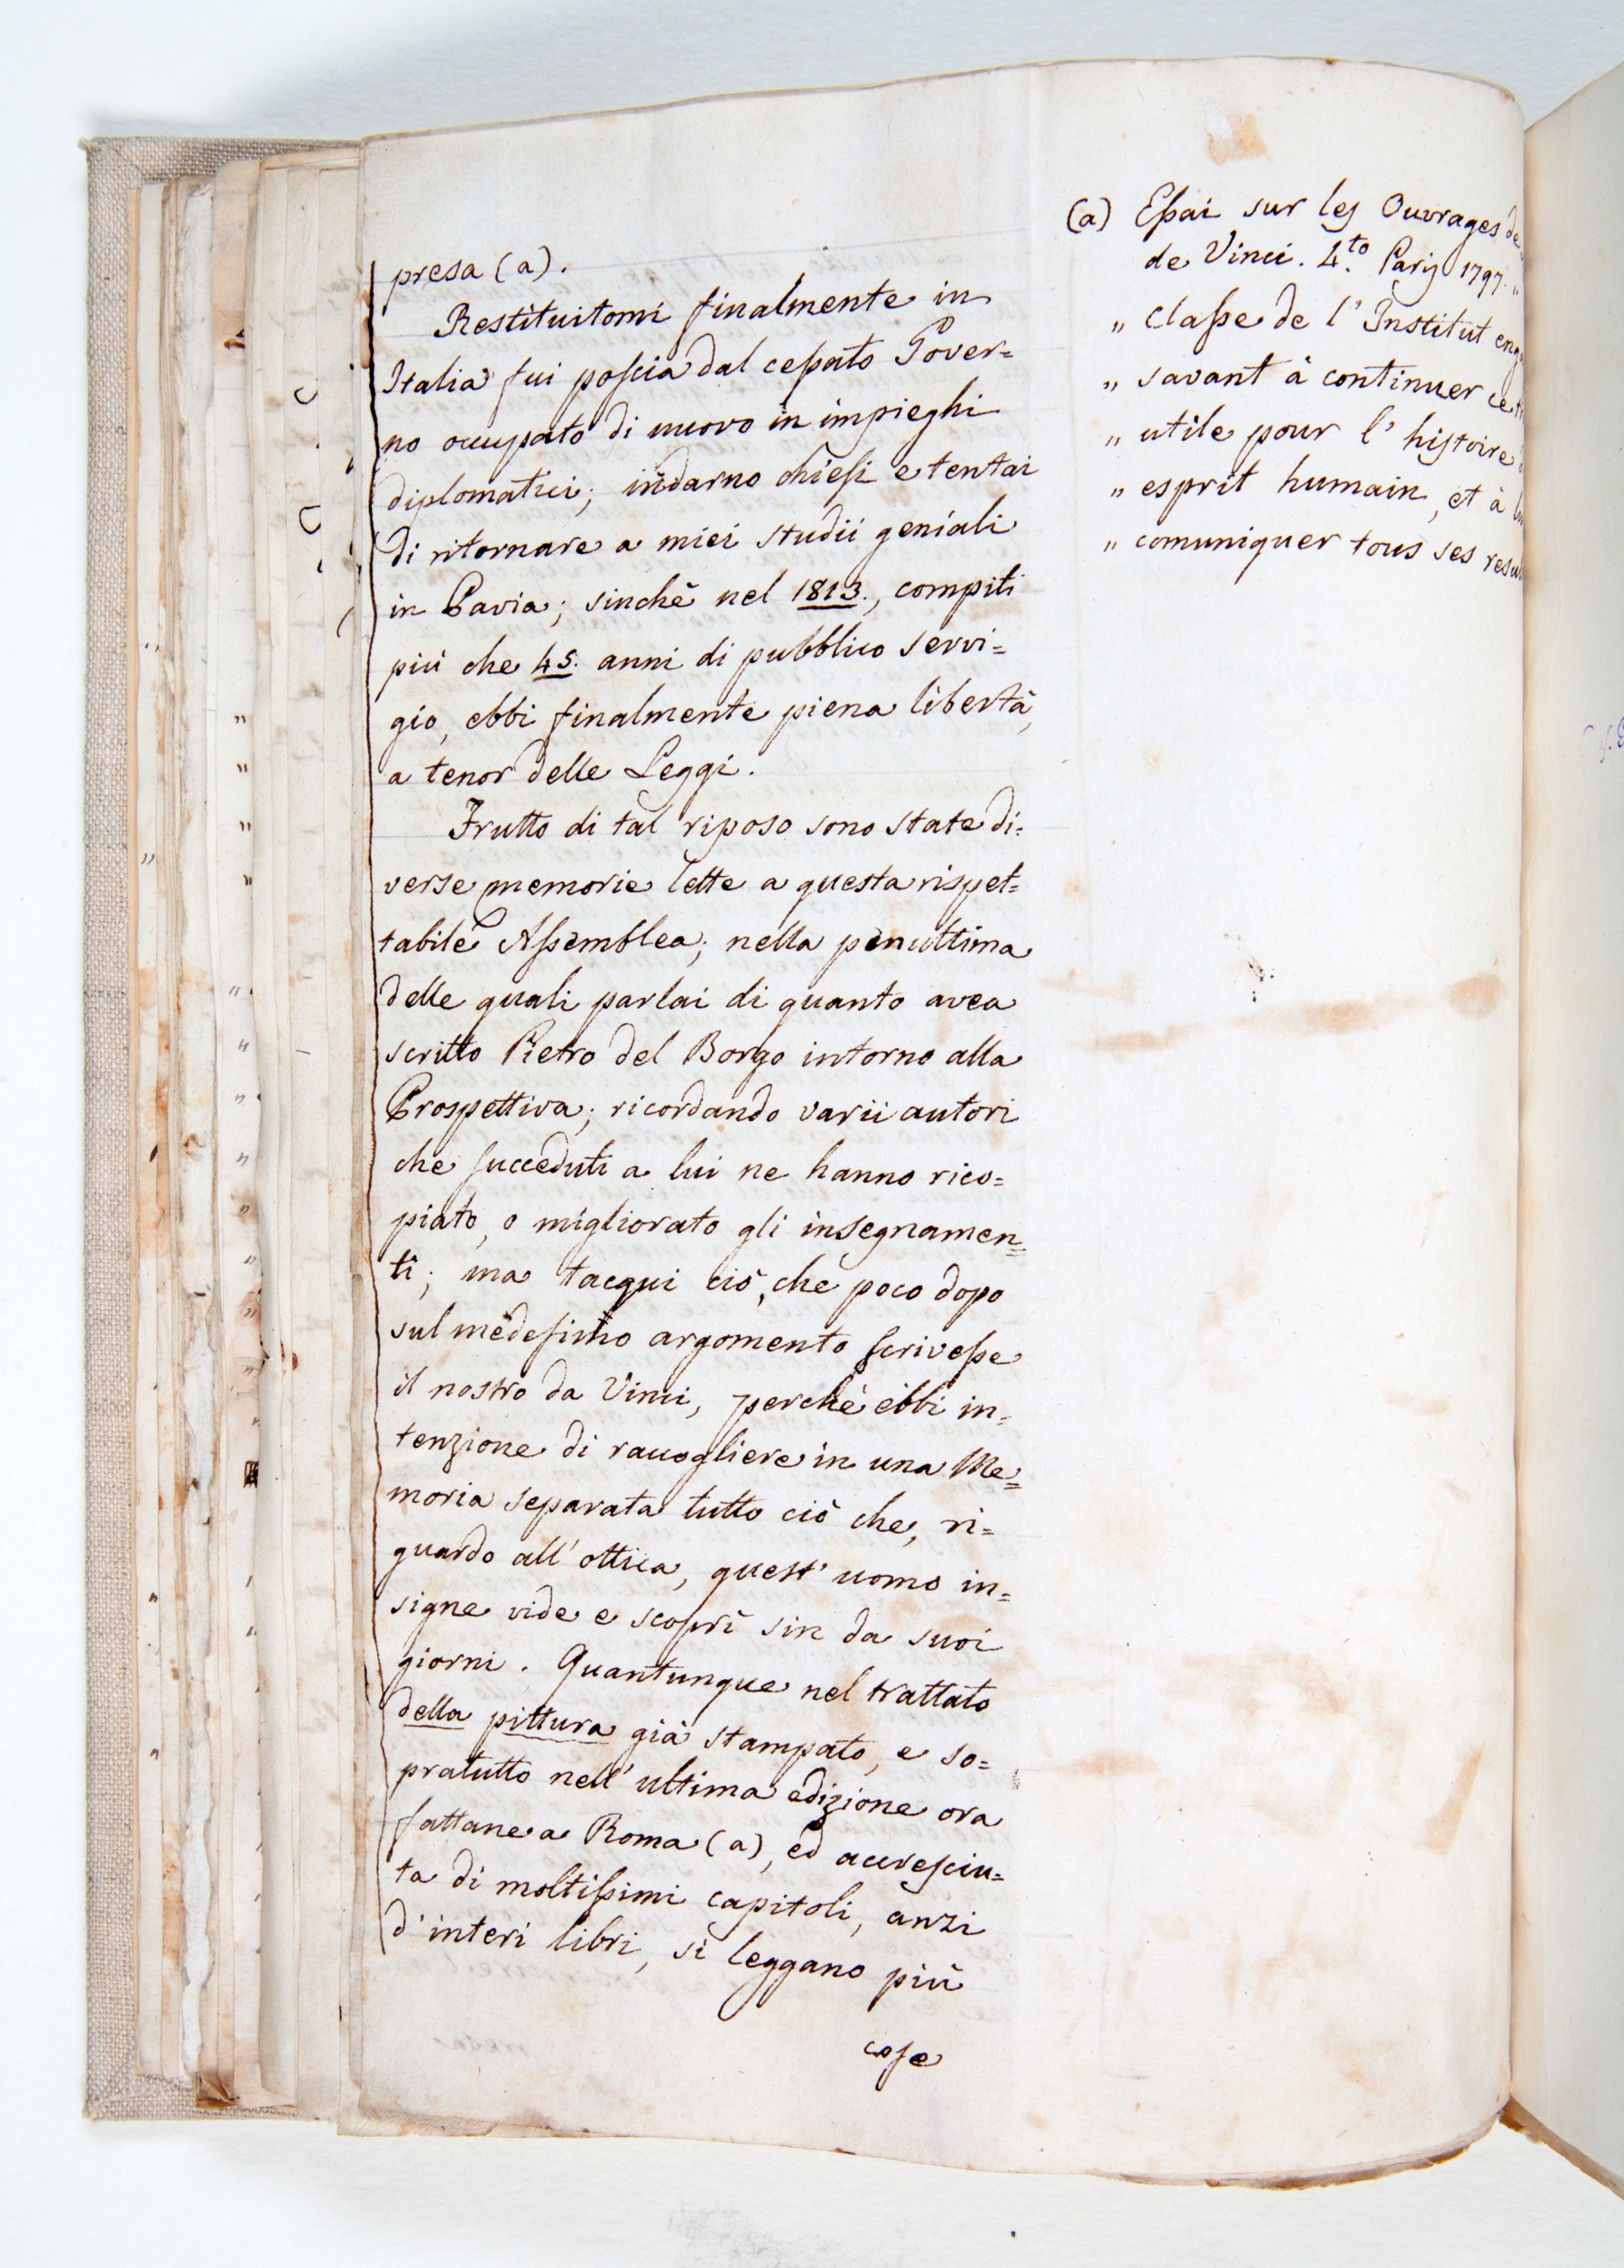 presa (a).
Restituitomi finalmente in
Italia fui poscia dal cessato Gover=
no occupato di nuovo in impieghi
diplomatici; indarno chiesi e tentai
di ritornare a miei studii geniali
in Pavia; sinchè nel 1813., compiti
più che 45. anni di pubblico servi=
gio, ebbi finalmente piena libertà,
a tenor delle Leggi.
Frutto di tal riposo sono state di=
verse memorie lette a questa rispet=
tabile Assemblea; nella penultima
delle quali parlai di quanto avea
scritto Pietro del Borgo intorno alla
Prospettiva; ricordando varii autori
che succeduti a lui ne hanno rico=
piato, o migliorato gli insegnamen=
ti; ma tacqui ciò, che poco dopo
sul medesimo argomento scrivesse
il nostro da Vinci, perchè ebbi in=
tenzione di raccogliere in una Me=
moria separata tutto ciò che, ri=
guardo all'ottica, quest'uomo in=
signe vide e scoprì sin da suoi
giorni. Quantunque nel trattato
della pittura già stampato, e so=
pratutto nell'ultima edizione ora
fattane a Roma (a), ed accresciu=
ta di moltissimi capitoli, anzi
d'interi libri, si leggano più
cose
(a) Essai sur les Ouvrages de
de Vinci. 4.to Paris 1797. "
" Classe de l'Institut
" savant à continuer
" utile pour l'histoire
" esprit humain, et à
" comuniquer tous ses